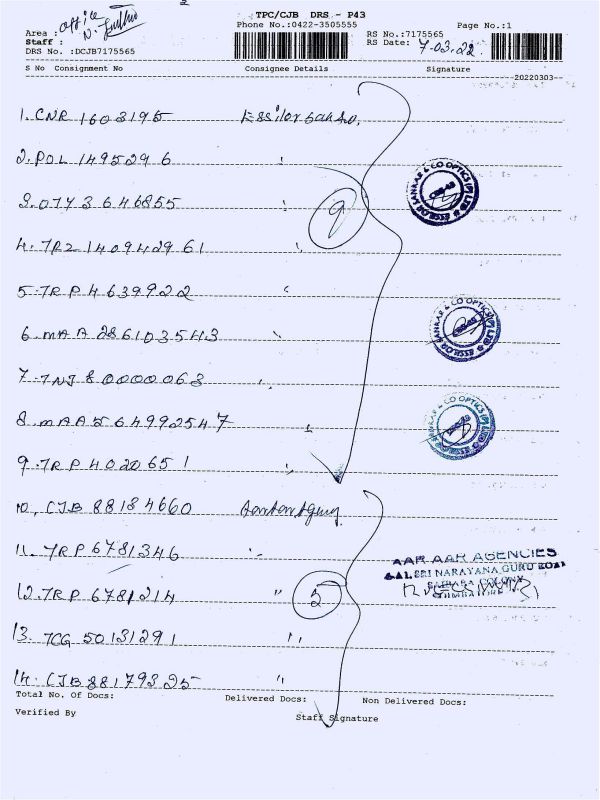 TPC/CJB DRS - P43
Area : office
Phone No.:0422-3505555
Page No.:1
Staff : N.
RS No.:7175565
DRS No. :DCJB7175565
RS Date: 7-03.22.
S No Consignment No Consignee Details Signature
20220303
1. CNR 1603195 Essilor
2. POL 1495296 "
3. 0743646855 "
9
4. TRZ 140942961 "
5. TRP 4639922 "
6. MAA 286103543 "
7. TNJ 80000063 "
8. MAA 564992547 "
9. TRP 4020651 "
10. CJB 88184660
11. TRP 6781346 "
12. TRP 6781214 "
5
13. TCG 50131291 "
14. CJB 88179325 "
ESSILOR SANKAR & CO OPTICS (P) LTD
ESSILOR SANKAR & CO OPTICS (P) LTD
ESSILOR SANKAR & CO OPTICS (P) LTD
AAR AAR AGENCIES
SRI NARAYANA GURU ROAD
SAIBABA COLONY
COIMBATORE
Total No. Of Docs: Delivered Docs: Non Delivered Docs:
Verified By
Staff Signature